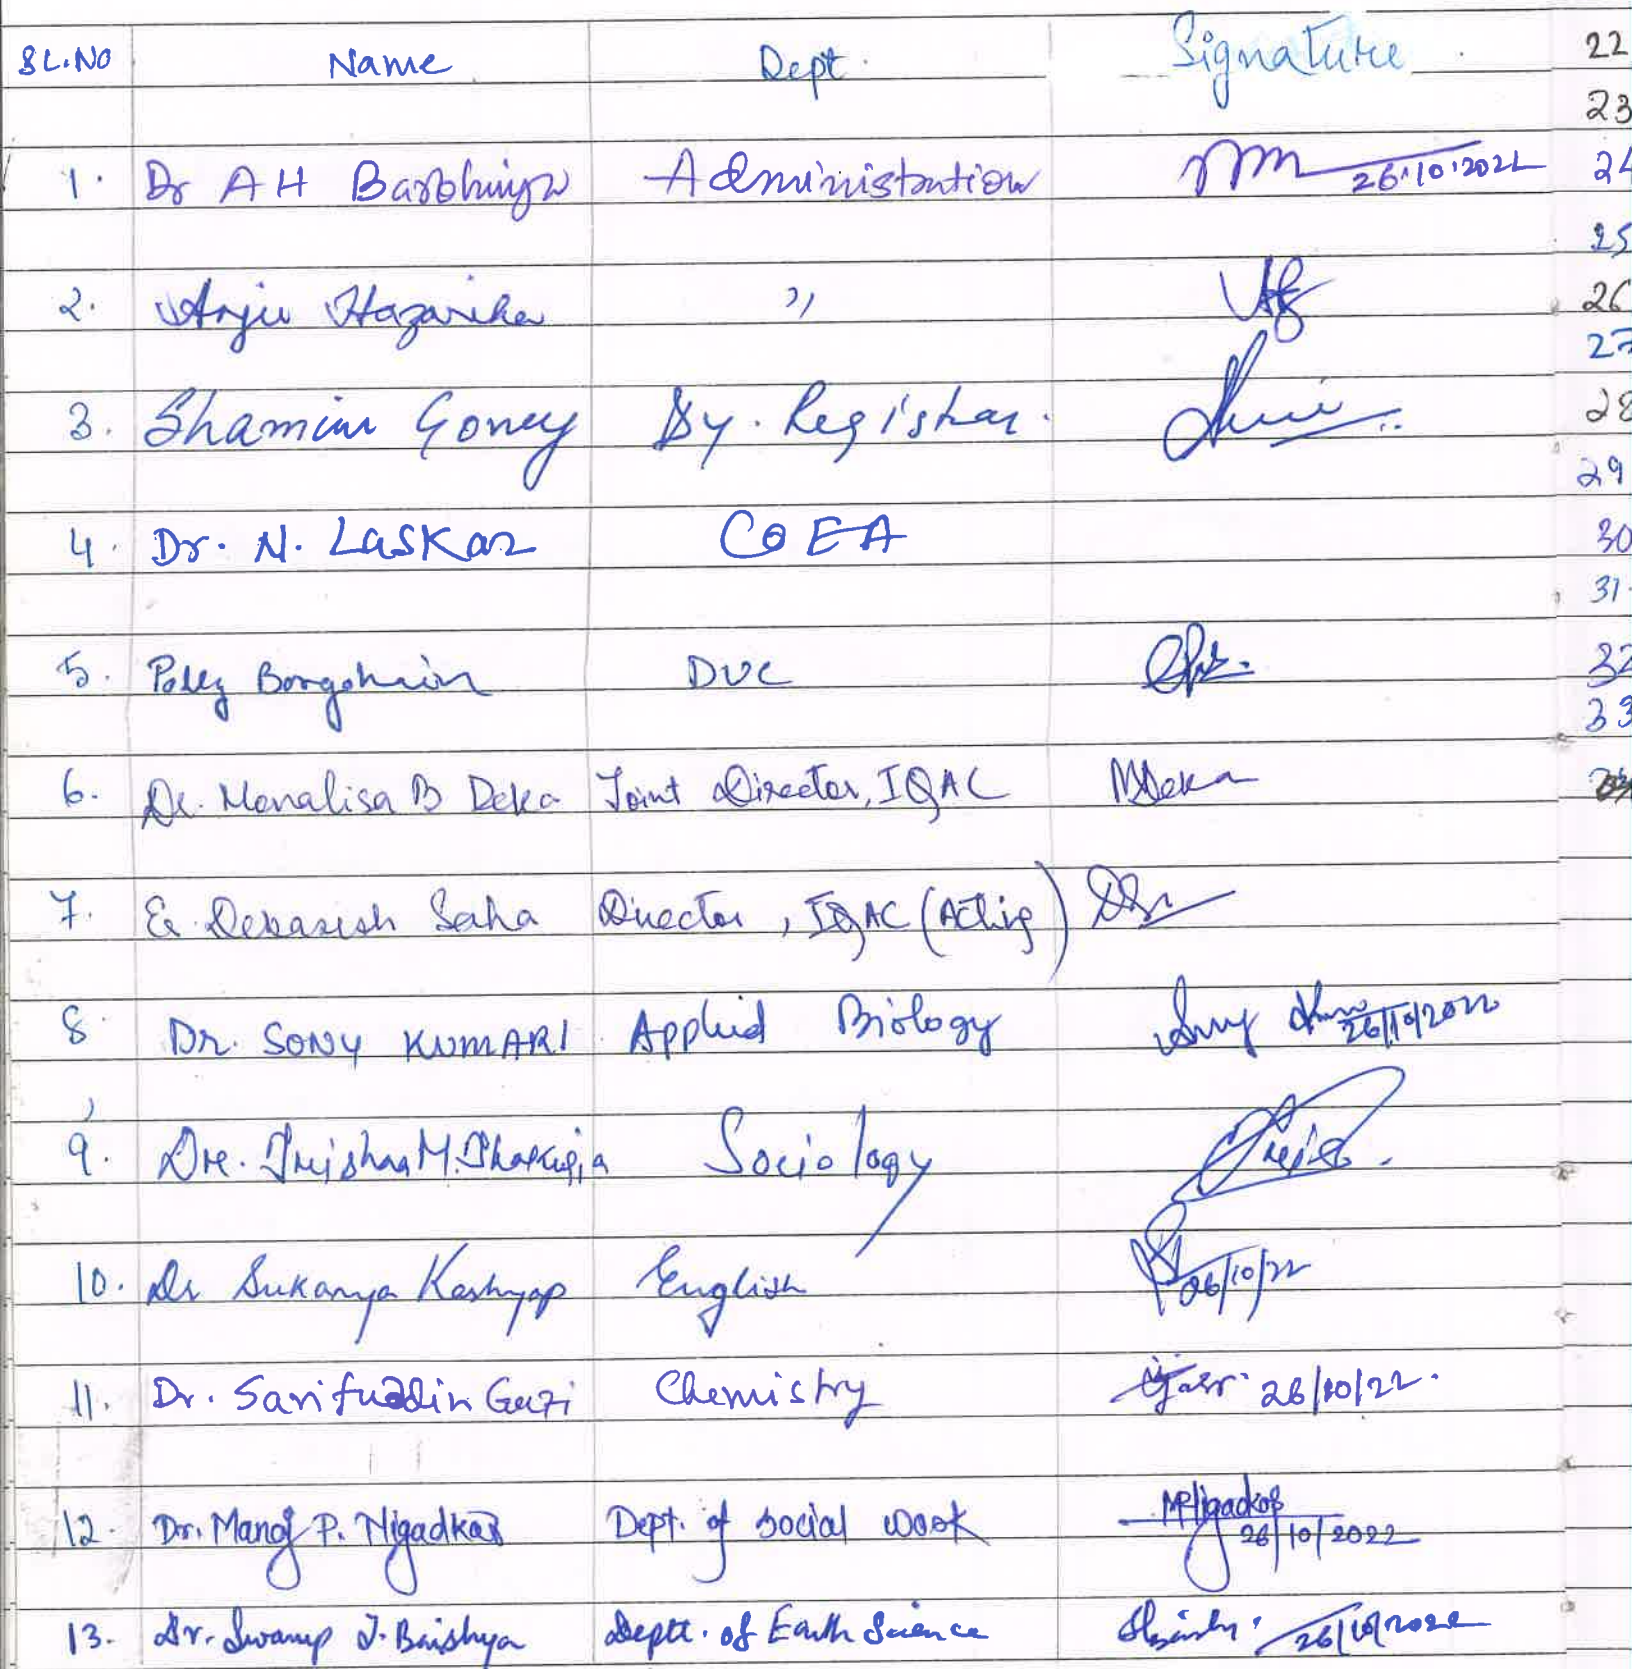 SL.NO Name Dept. Signature 22
23
1. Dr A H Barbhuiya Administration 26.10.2022 24
25
2. Anju Hazarika " 26
27
3. Shamim Goney Dy. Registrar. 28
29
4. Dr. N. Laskar COEA 30
31.
5. Polly Borgohain DUC 32
33
6. Dr. Monalisa B Deka Joint Director, IQAC MDeka
7. Er. Debasish Saha Director, IQAC (Acting)
8. Dr. SONY KUMARI Applied Biology 26/10/2022
9. Dr. Trishna M. Thakuria Sociology
10. Dr Sukanya Kashyap English 26/10/22
11. Dr. Sarifuddin Gazi Chemistry 26/10/22.
12. Dr. Manoj P. Nigadkar Dept. of Social Work MPNigadkar
26/10/2022
13. Dr. Swarup J. Baishya Deptt. of Earth Science 26/10/2022